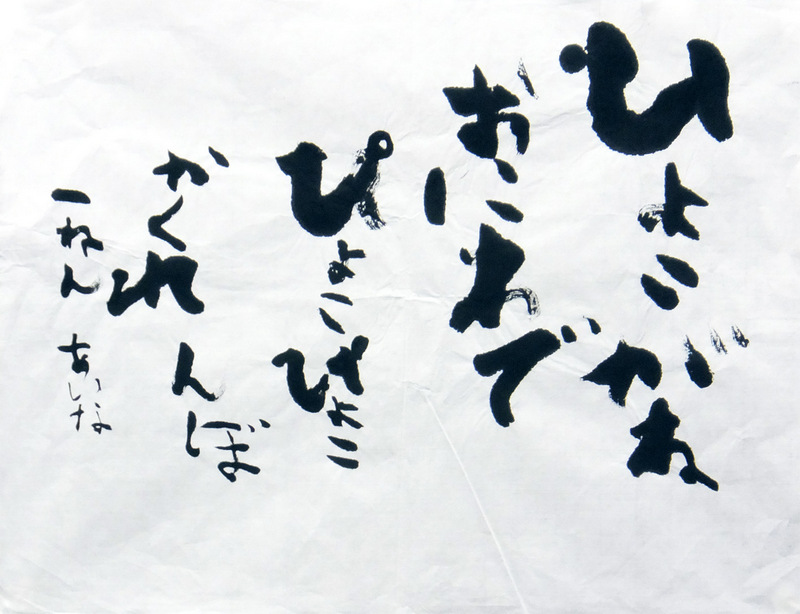 ひよこがね
おにわで
ぴょこぴょこ
かくれんぼ
一ねん あいな